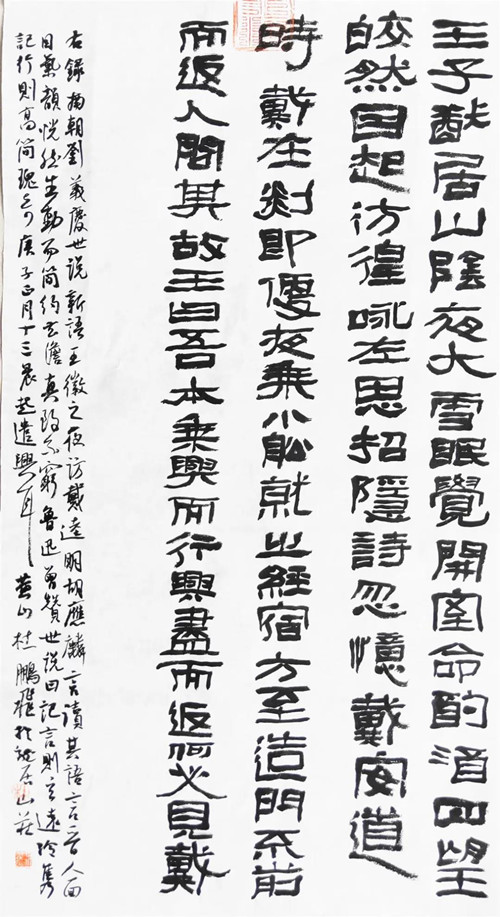 王子猷居山陰夜大雪眠覺開室命酌酒四望
皎然因起彷徨咏左思招隱詩忽憶戴安道
時戴在剡即便夜乘小船就之經宿方至造門不前
而返人問其故王曰吾本乘興而行興盡而返何必見戴
右錄南朝劉義慶世說新語王徽之夜訪戴逵明胡應麟言讀其語言晉人面
目氣韻恍然生動而簡約玄澹真致不窮魯迅曾贊世說曰記言則玄遠冷雋
記行則高簡瑰奇庚子正月十三晨起遣興耳黃山杜鵬於居山莊